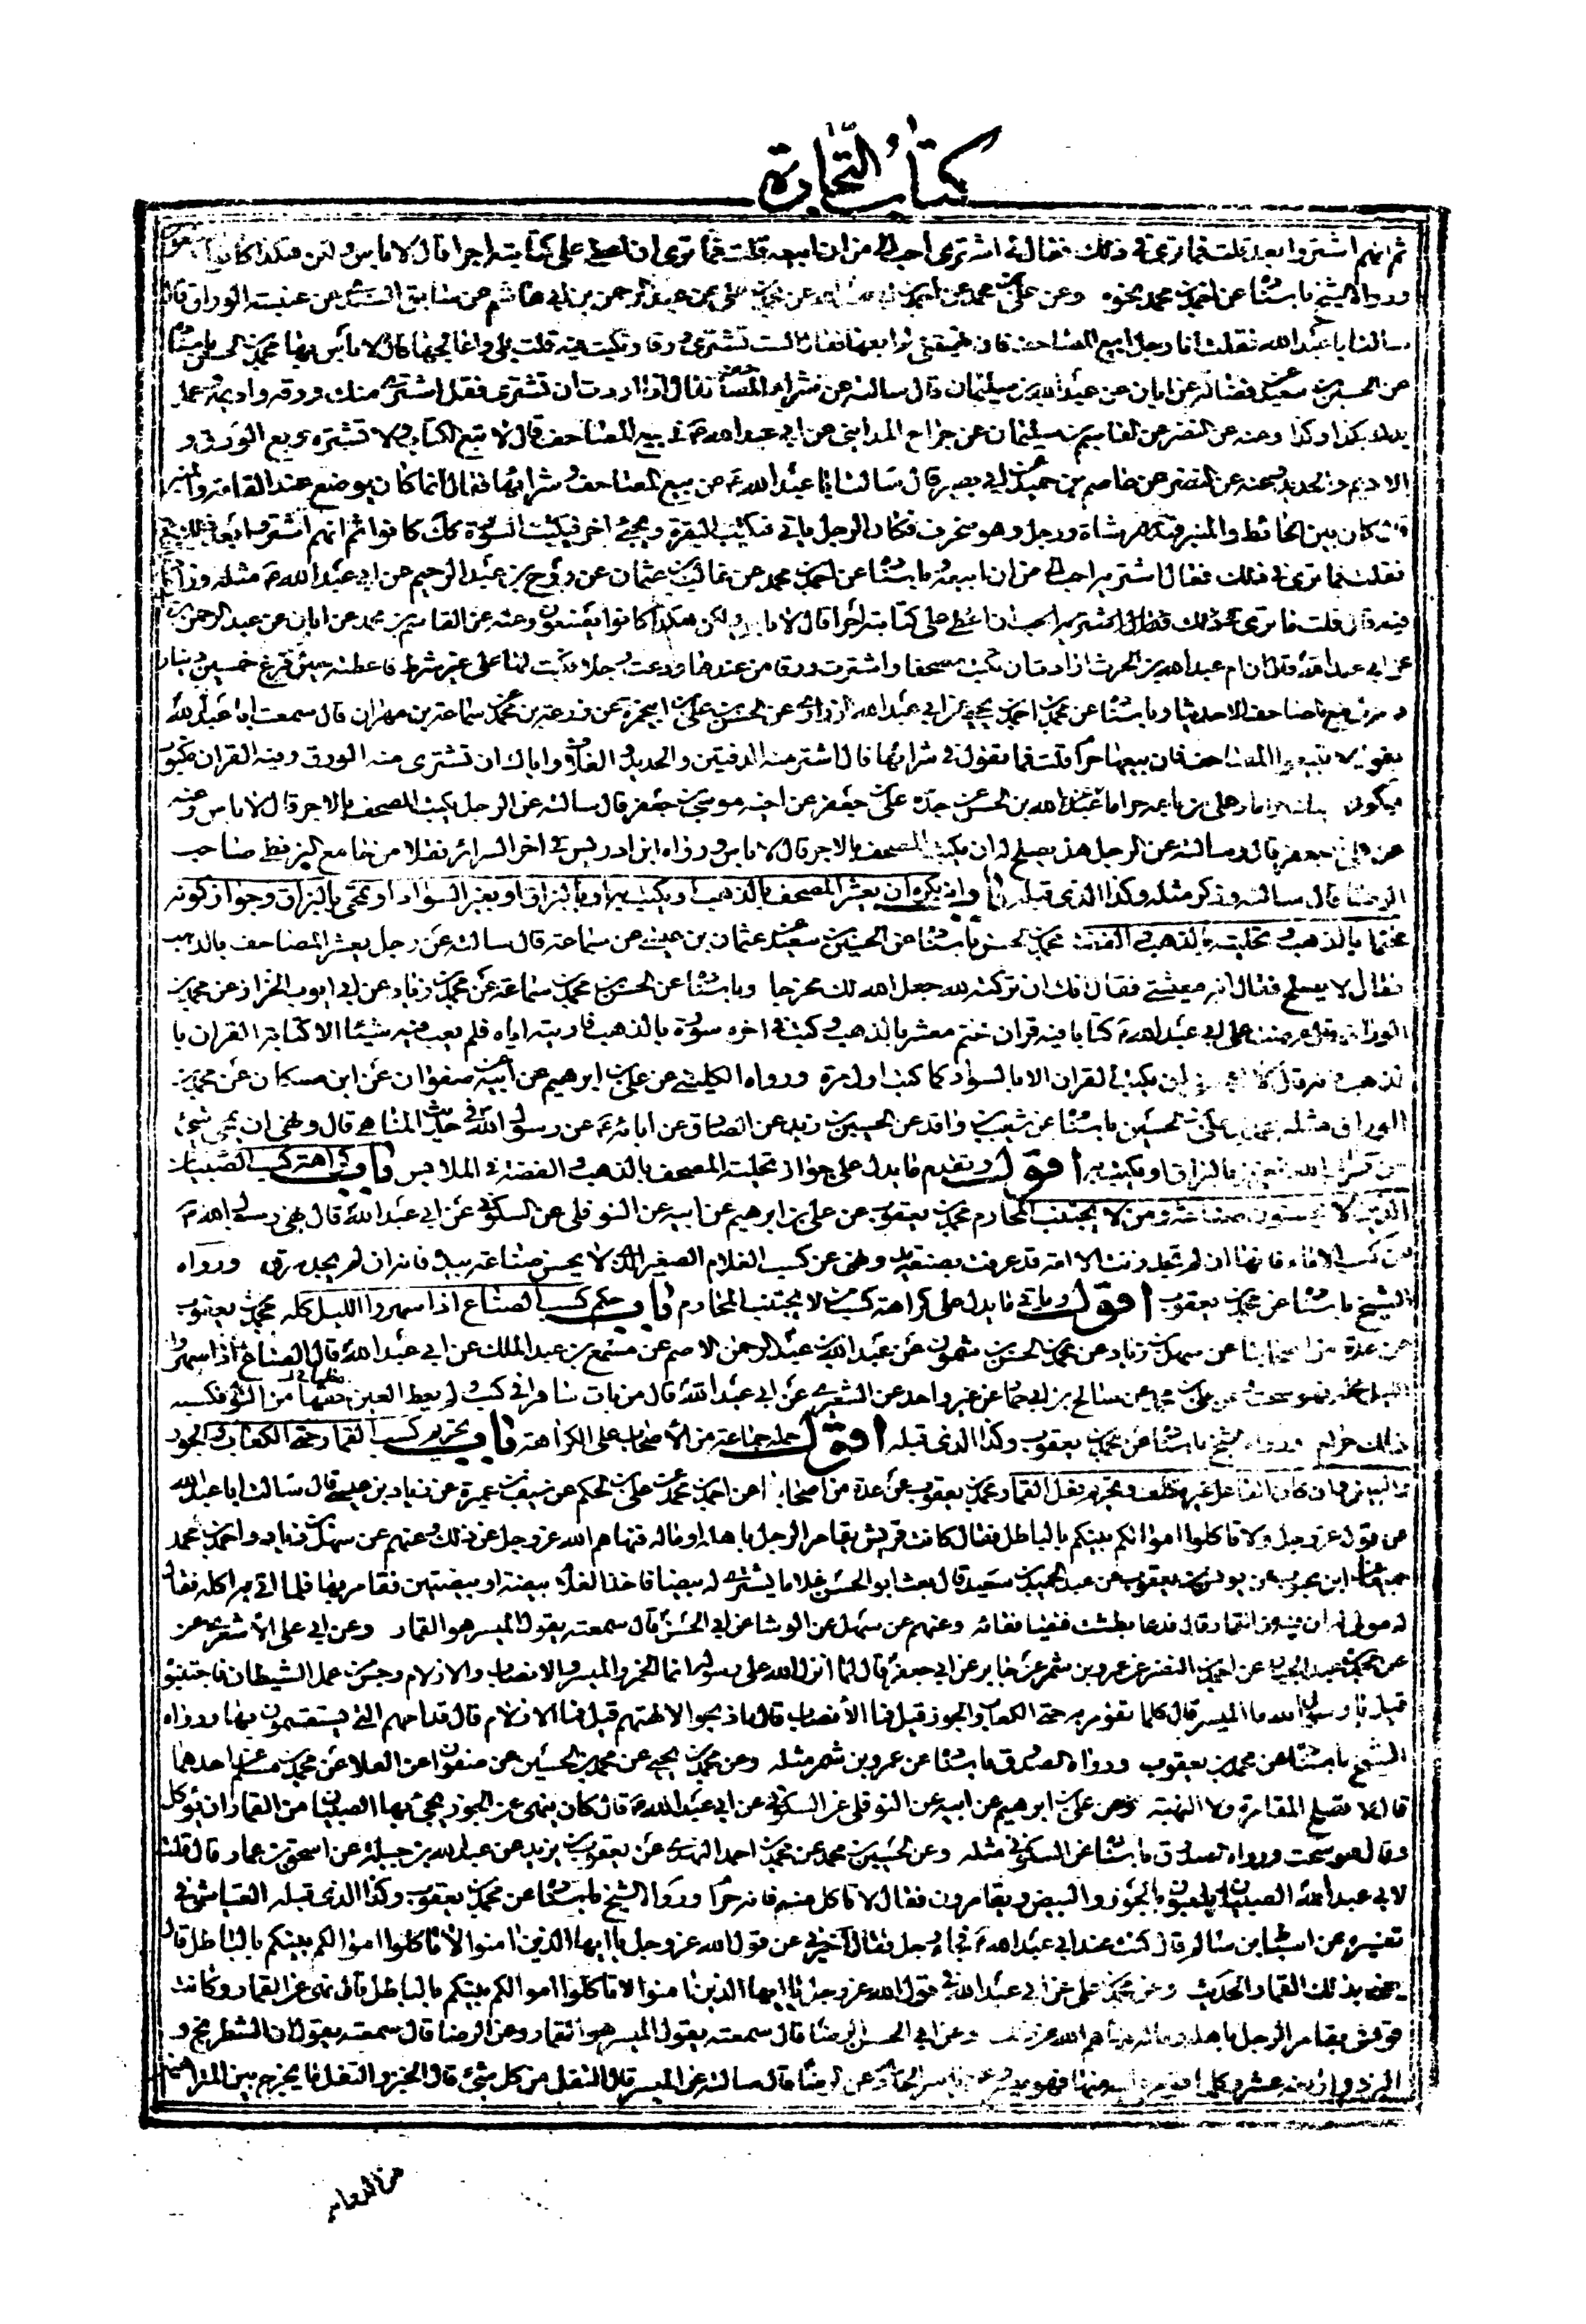 كتاب التجارة
ثم انهم اشتروا بعد قلت فما ترى في ذلك فقال لي اشترى احب الي من ان ابيعه قلت فما ترى ان اعطي على كتابته اجرا قال لا باس ولكن هكذا كانوا
ورواه الشيخ باسناده عن احمد بن محمد نحوه وعن علي بن محمد عن احمد بن ابي عبد الله عن محمد بن علي عن عبد الرحمن بن ابي هاشم عن سابق السندي عن عنبسة الوراق قال
سالت ابا عبد الله فقلت انا رجل ابيع المصاحف فان نهيتني لم ابعها فقال الست تشتري ورقا وتكتب فيه قلت بلى واعالجها قال لا باس بها محمد بن الحسن باسناده
عن الحسين بن سعيد عن فضالة عن ابان عن عبد الله بن سليمان قال سالته عن شراء المصاحف فقال اذا اردت ان تشتري فقل اشتري منك ورقه واديمه وعمل
يدك بكذا وكذا وعنه عن النضر عن القاسم بن سليمان عن جراح المدايني عن ابي عبد الله ع في بيع المصاحف قال لا تبع الكتاب ولا تشتره وبع الورق و
الاديم والحديد وعنه عن النضر عن عاصم بن حميد عن ابي بصير قال سالت ابا عبد الله ع عن بيع المصاحف وشرائها فقال انما كان يوضع عند القامة والمنبر
قال كان بين الحائط والمنبر قدر ممر شاة ورجل وهو منحرف فكان الرجل ياتي فيكتب البقرة ويجيء اخر فيكتب السورة كذلك كانوا ثم انهم اشتروا بعد ذلك
فقلت فما ترى في ذلك فقال اشتريه احب الي من ان ابيعه باسناده عن احمد بن محمد عن غالب بن عثمان عن روح بن عبد الرحيم عن ابي عبد الله ع مثله وزاد
فيه قال قلت فما ترى ان اعطي على كتابته اجرا قال لا باس ولكن هكذا كانوا يصنعون وعنه عن القاسم بن محمد عن ابان عن عبد الرحمن بن
عن ابي عبد الله قال ان ام عبد الله بن الحرث ارادت ان تكتب مصحفا واشترت ورقا من عندها ودعت رجلا فكتب لها على غير شرط فاعطته حين فرغ خمسين دينار
المصاحف الا حديثا وباسناده عن محمد بن احمد بن يحيى عن ابي عبد الله الرازي عن الحسن بن علي بن ابي حمزة عن زرعة بن محمد عن سماعة بن مهران قال سمعت ابا عبد الله
يقول لا تبيعوا المصاحف فان بيعها حرام قلت فما تقول في شرائها قال اشتر منه الدفتين والحديد والغلاف واياك ان تشتري منه الورق وفيه القران مكتوب
فيكون عليك حراما وعلى من باعه حراما عبد الله بن الحسن عن جده علي بن جعفر عن اخيه موسى بن جعفر قال سالته عن الرجل يكتب المصحف بالاجر قال لا باس وعنه
عن علي بن جعفر قال وسالته عن الرجل هل يصلح له ان يكتب المصحف بالاجر قال لا باس ورواه ابن ادريس في اخر السرائر نقلا من جامع البزنطي صاحب
الرضا قال سالته وذكر مثله وكذا الذي قبله باب انه يكره ان يعشر المصحف بالذهب او يكتب به او بالبزاق او بغير السواد او تمحى بالبزاق وجواز كونه
مختما بالذهب وتحليته بالذهب والفضة محمد بن الحسن باسناده عن الحسين بن سعيد عن عثمان بن عيسى عن سماعة قال سالته عن رجل يعشر المصاحف بالذهب
فقال لا يصلح فقال انه معيشتي فقال انك ان تركته لله جعل الله لك مخرجا وباسناده عن الحسن بن محمد بن سماعة عن محمد بن زياد عن ابي ايوب الخراز عن محمد بن
الوراق قال عرضت على ابي عبد الله ع كتابا فيه قران ختم معشر بالذهب وكتب في اخره سورة بالذهب فاريته اياه فلم يعب منه شيئا الا كتابة القران با
لذهب فانه قال لا يعجبني ان يكتب القران الا بالسواد كما كتب اول مرة ورواه الكليني عن علي بن ابرهيم عن ابيه عن صفوان عن ابن مسكان عن محمد بن
الوراق مثله محمد بن علي بن الحسين باسناده عن شعيب بن واقد عن الحسين بن زيد عن الصادق عن ابائه ع عن رسول الله في حديث المناهي قال ونهى ان يمحى شيء
من كتاب الله عز وجل بالبزاق او يكتب به اقول وتقدم ما يدل على جواز تحلية المصحف بالذهب والفضة في الملابس باب كراهة كسب الصبيان
الذين لا يحسنون صناعة ومن لا يجتنب المحارم محمد بن يعقوب عن علي بن ابرهيم عن ابيه عن النوفلي عن السكوني عن ابي عبد الله قال نهى رسول الله ص
عن كسب الاماء فانها ان لم تجد زنت الا امة قد عرفت بصنعة يد ونهى عن كسب الغلام الصغير الذي لا يحسن صناعة بيده فانه ان لم يجد سرق ورواه
الشيخ باسناده عن محمد بن يعقوب اقول وياتي ما يدل على كراهة كسب من لا يجتنب المحارم باب حكم كسب الصناع اذا سهروا الليل كله محمد بن يعقوب
عن عدة من اصحابنا عن سهل بن زياد عن محمد بن الحسن بن شمون عن عبد الله بن عبد الرحمن الاصم عن مسمع بن عبد الملك عن ابي عبد الله قال الصناع اذا سهروا
الليل كله فهو سحت وعن علي بن محمد عن صالح بن ابي حماد عن غير واحد عن الشعيري عن ابي عبد الله قال من بات ساهرا في كسب ولم يعط العين حظها من النوم فكسبه
ذلك حرام ورواه الشيخ باسناده عن محمد بن يعقوب وكذا الذي قبله اقول حمله جماعة من الاصحاب على الكراهة باب تحريم كسب القمار حتى الكعاب والجوز
والبيض وان كان الفاعل غير مكلف وتحريم فعل القمار محمد بن يعقوب عن عدة من اصحابنا عن احمد بن محمد عن علي بن الحكم عن سيف بن عميرة عن زياد بن عيسى قال سالت ابا عبد الله
عن قوله عز وجل ولا تاكلوا اموالكم بينكم بالباطل فقال كانت قريش يقامر الرجل باهله وماله فنهاهم الله عز وجل عن ذلك وعنهم عن سهل بن زياد واحمد بن محمد
جميعا عن ابن محبوب عن يونس بن يعقوب عن عبد الحميد بن سعيد قال بعث ابو الحسن غلاما يشتري له بيضا فاخذ الغلام بيضة او بيضتين فقامر بها فلما اتى به اكله فقال
له مولى له ان فيه من القمار قال فدعا بطشت فتقيا فقاءه وعنهم عن سهل عن الوشا عن ابي الحسن قال سمعته يقول الميسر هو القمار وعن ابي علي الاشعري عن
عن محمد بن عبد الجبار عن احمد بن النضر عن عمرو بن شمر عن جابر عن ابي جعفر قال لما انزل الله على رسوله انما الخمر والميسر والانصاب والازلام رجس من عمل الشيطان فاجتنبوه
قيل يا رسول الله ما الميسر قال كلما تقومر به حتى الكعاب والجوز قيل فما الانصاب قال ما ذبحوا لالهتهم قيل فما الازلام قال قداحهم التي يستقسمون بها ورواه
الشيخ باسناده عن محمد بن يعقوب ورواه الصدوق باسناده عن عمرو بن شمر مثله وعن محمد بن يحيى عن محمد بن الحسين عن صفوان عن العلا عن محمد بن مسلم عن احدهما
قال لا تصلح المقامرة ولا النهبة وعن علي بن ابرهيم عن ابيه عن النوفلي عن السكوني عن ابي عبد الله ع قال كان ينهى عن الجوز يجيء بها الصبيان من القمار ان يؤكل
وقال هو سحت ورواه الصدوق باسناده عن السكوني مثله وعن الحسين بن محمد عن محمد بن احمد النهدي عن يعقوب بن يزيد عن عبد الله بن جبلة عن اسحق بن عمار قال قلت
لابي عبد الله الصبيان يلعبون بالجوز والبيض ويقامرون فقال لا تاكل منه فانه حرام ورواه الشيخ باسناده عن محمد بن يعقوب وكذا الذي قبله العياشي في
تفسيره عن اسباط بن سالم قال كنت عند ابي عبد الله ع فجاء رجل فقال اخبرني عن قول الله عز وجل يا ايها الذين امنوا لا تاكلوا اموالكم بينكم بالباطل قال
يعني بذلك القمار الحديث وعن محمد بن علي عن ابي عبد الله في قول الله عز وجل يا ايها الذين امنوا لا تاكلوا اموالكم بينكم بالباطل قال نهى عن القمار وكانت
قريش يقامر الرجل باهله وماله فنهاهم الله عن ذلك وعن ابي الحسن الرضا قال سمعته يقول الميسر هو القمار وعن الرضا قال سمعته يقول ان الشطرنج و
النرد واربعة عشر وكلما قومر عليه منها فهو ميسر وعن ياسر الخادم عن الرضا قال سالته عن الميسر قال الثفل من كل شيء قال الخبز والثفل ما يخرج بين المتراهنين
من الدراهم